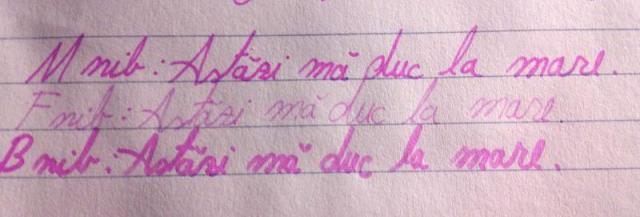 M nib: Astăzi mă duc la mare.
F nib: Astăzi mă duc la mare.
B nib: Astăzi mă duc la mare.